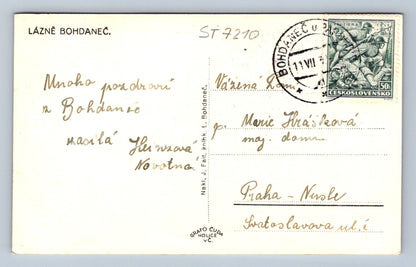 LÁZNĚ BOHDANEČ.
ST 7210
Mnoho pozdravů
z Bohdanče
zasílá
Novotná
Nakl. J. Feit, knihk. L. Bohdaneč.
GRAFO ČUDA
HOLICE
V Č.
BOHDANEČ U PARD
11 VII
50
ČESKOSLOVENSKO
Vážená Paní
p. Marie Hrášková
maj. domu
Praha - Nusle
Svatoslavova ul. i